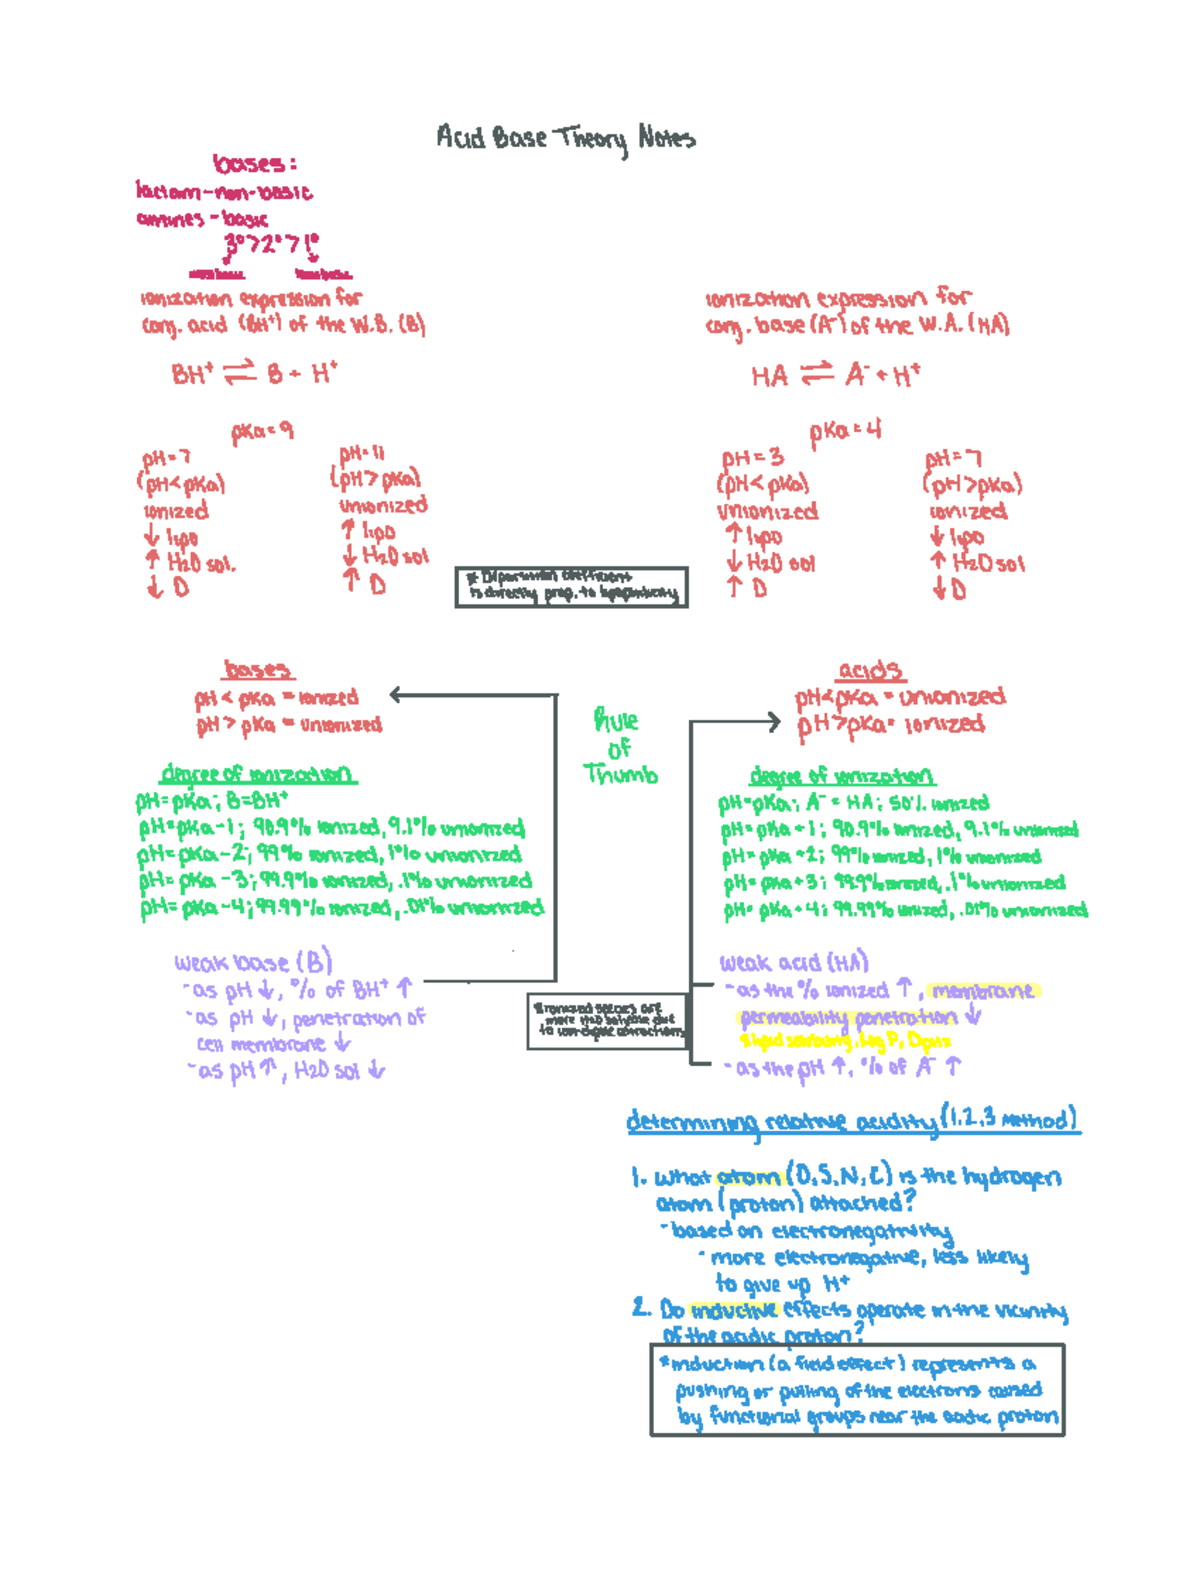 Acid Base Theory Notes
bases:
lactam-non-basic
amines - basic
3°>2°>1°
ionization expression for
conj. acid (BH⁺) of the W.B. (B)
BH⁺ ⇌ B + H⁺
pKa = 9
pH = 7
(pH < pKa)
ionized
↓ lipo
↑ H2O sol.
↓ D
pH = 11
(pH > pKa)
unionized
↑ lipo
↓ H2O sol
↑ D
ionization expression for
conj. base (A⁻) of the W.A. (HA)
HA ⇌ A⁻ + H⁺
pKa = 4
pH = 3
(pH < pKa)
unionized
↑ lipo
↓ H2O sol
↑ D
pH = 7
(pH > pKa)
ionized
↓ lipo
↑ H2O sol
↓ D
coefficient
is directly prop. to lipophilicity
bases
pH < pKa = ionized
pH > pKa = unionized
Rule
of
Thumb
acids
pH<pKa = unionized
pH>pKa = ionized
degree of ionization
pH = pKa ; B=BH⁺
pH=pKa-1 ; 90.9% ionized, 9.1% unionized
pH= pKa-2 ; 99% ionized, 1% unionized
pH= pKa -3 ; 99.9% ionized, .1% unionized
pH= pKa -4 ; 99.99% ionized, .01% unionized
degree of ionization
pH=pKa ; A⁻ = HA ; 50% ionized
pH= pKa +1 ; 90.9% ionized, 9.1% unionized
pH= pKa +2 ; 99% ionized, 1% unionized
pH= pKa +3 ; 99.9% ionized, .1% unionized
pH= pKa +4 ; 99.99% ionized, .01% unionized
weak base (B)
-as pH ↓, % of BH⁺ ↑
-as pH ↓, penetration of
cell membrane ↓
-as pH ↑, H2O sol ↓
*ionized species are
more H2O soluble due
to ion-dipole interactions
weak acid (HA)
-as the % ionized ↑, membrane
permeability penetration ↓
*lipid solubility, Log P,
-as the pH ↑, % of A⁻ ↑
determining relative acidity (1,2,3 Method)
1. What atom (O,S,N,C) is the hydrogen
atom (proton) attached?
-based on electronegativity
-more electronegative, less likely
to give up H+
2. Do inductive effects operate in the vicinity
of the acidic proton?
*induction (a field effect) represents a
pushing or pulling of the electrons caused
by functional groups near the acidic proton